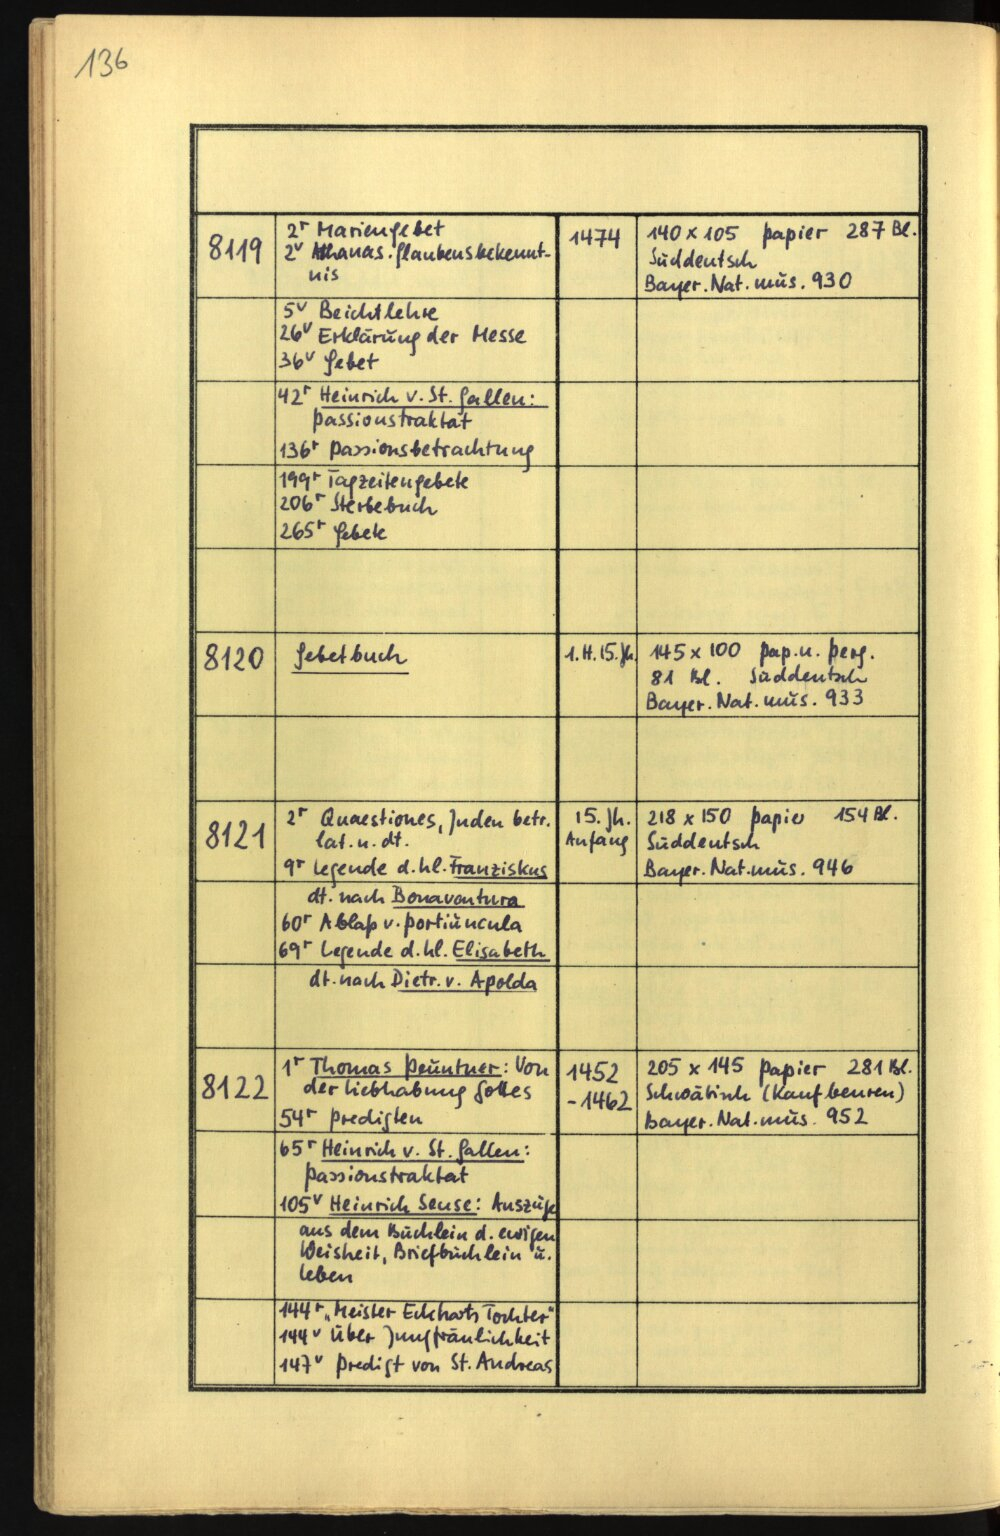 136
8119
2r Mariengebet
2v Athanas. Glaubensbekennt-
nis
1474
140 x 105 Papier 287 Bl.
Süddeutsch
Bayer. Nat. mus. 930
5v Beichtlehre
26v Erklärung der Messe
36v Gebet
42r Heinrich v. St. Gallen:
Passionstraktat
136r Passionsbetrachtung
199r Tagzeitengebete
206r Sterbebuch
265r Gebete
8120
Gebetbuch
1. H. 15. Jh.
145 x 100 Pap. u. Perg.
81 Bl. Süddeutsch
Bayer. Nat. mus. 933
8121
2r Quaestiones, Juden betr.
lat. u. dt.
9r Legende d. hl. Franziskus
15. Jh.
Anfang
218 x 150 Papier 154 Bl.
Süddeutsch
Bayer. Nat. mus. 946
dt. nach Bonaventura
60r Ablaß v. Portiuncula
69r Legende d. hl. Elisabeth
dt. nach Dietr. v. Apolda
8122
1r Thomas Peuntner: Von
der Liebhabung Gottes
54r Predigten
1452
-1462
205 x 145 Papier 281 Bl.
Schwäbisch (Kaufbeuren)
Bayer. Nat. mus. 952
65r Heinrich v. St. Gallen:
Passionstraktat
105v Heinrich Seuse: Auszüge
aus dem Büchlein d. ewigen
Weisheit, Briefbüchlein u.
Leben
144r „Meister Eckharts Tochter"
144v Über Jungfräulichkeit
147v Predigt von St. Andreas